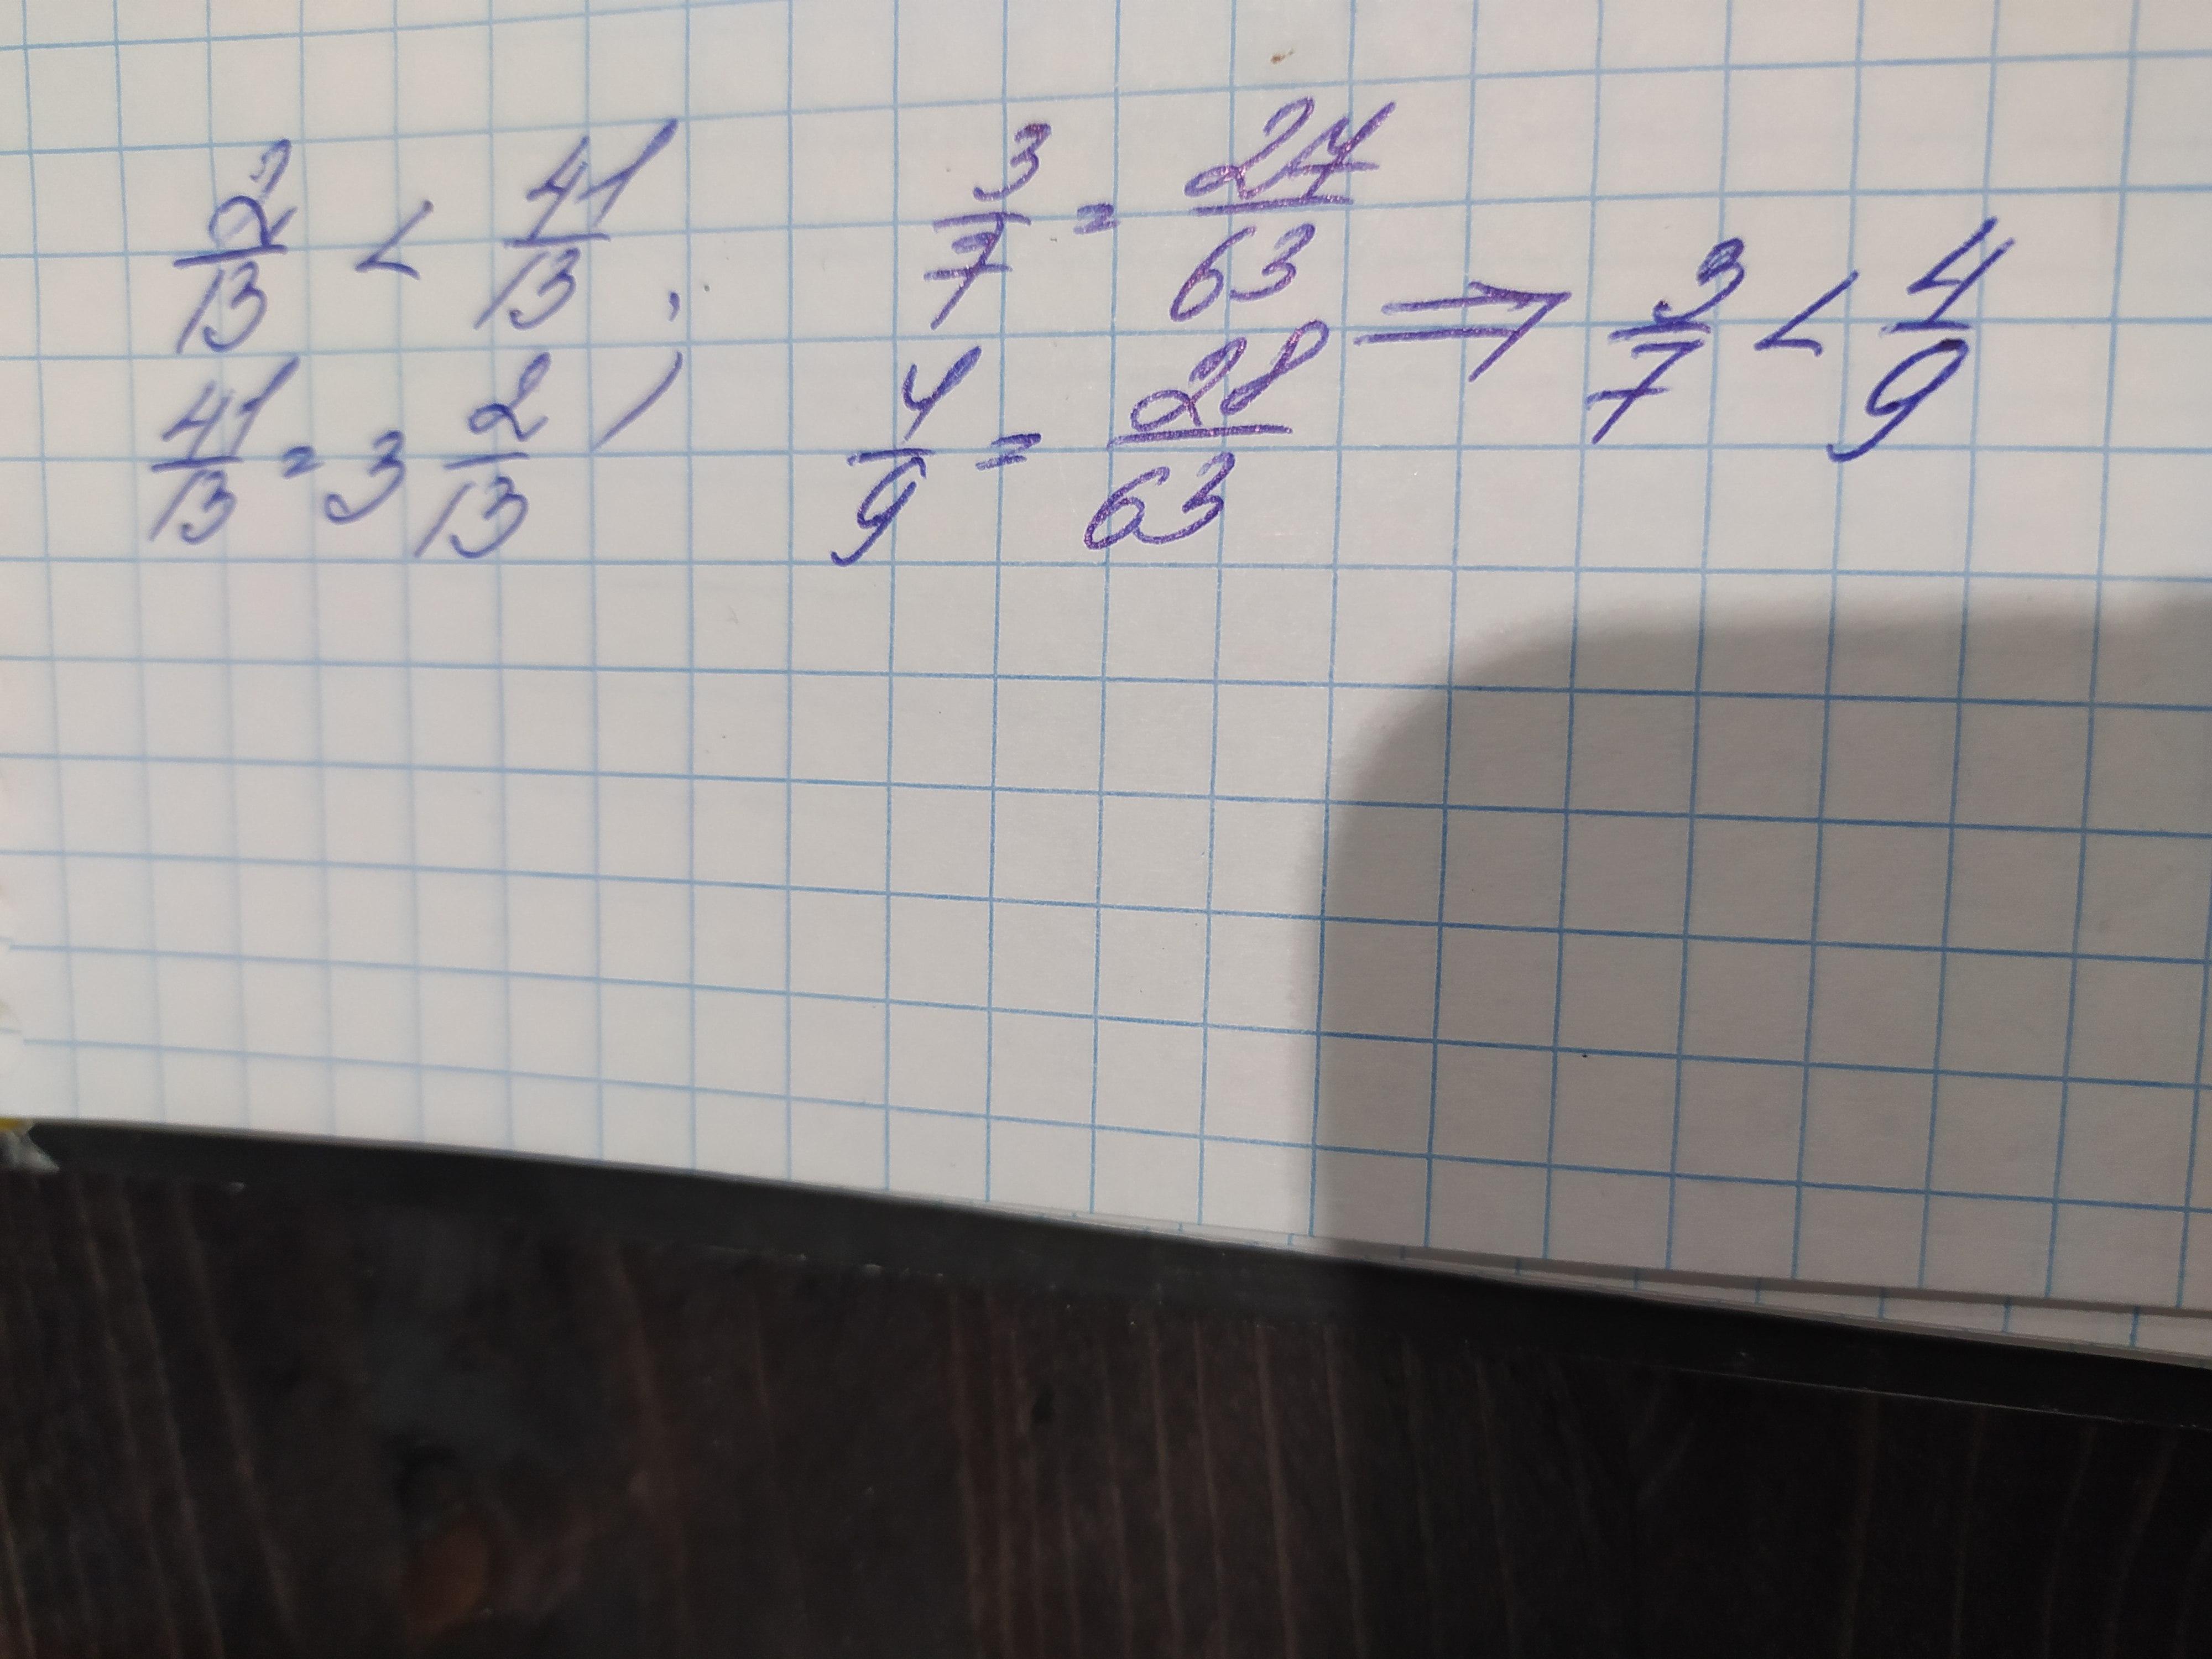 2/13 < 41/13 ;
41/13 = 3 2/13
3/7 = 27/63
4/9 = 28/63
⇒ 3/7 < 4/9